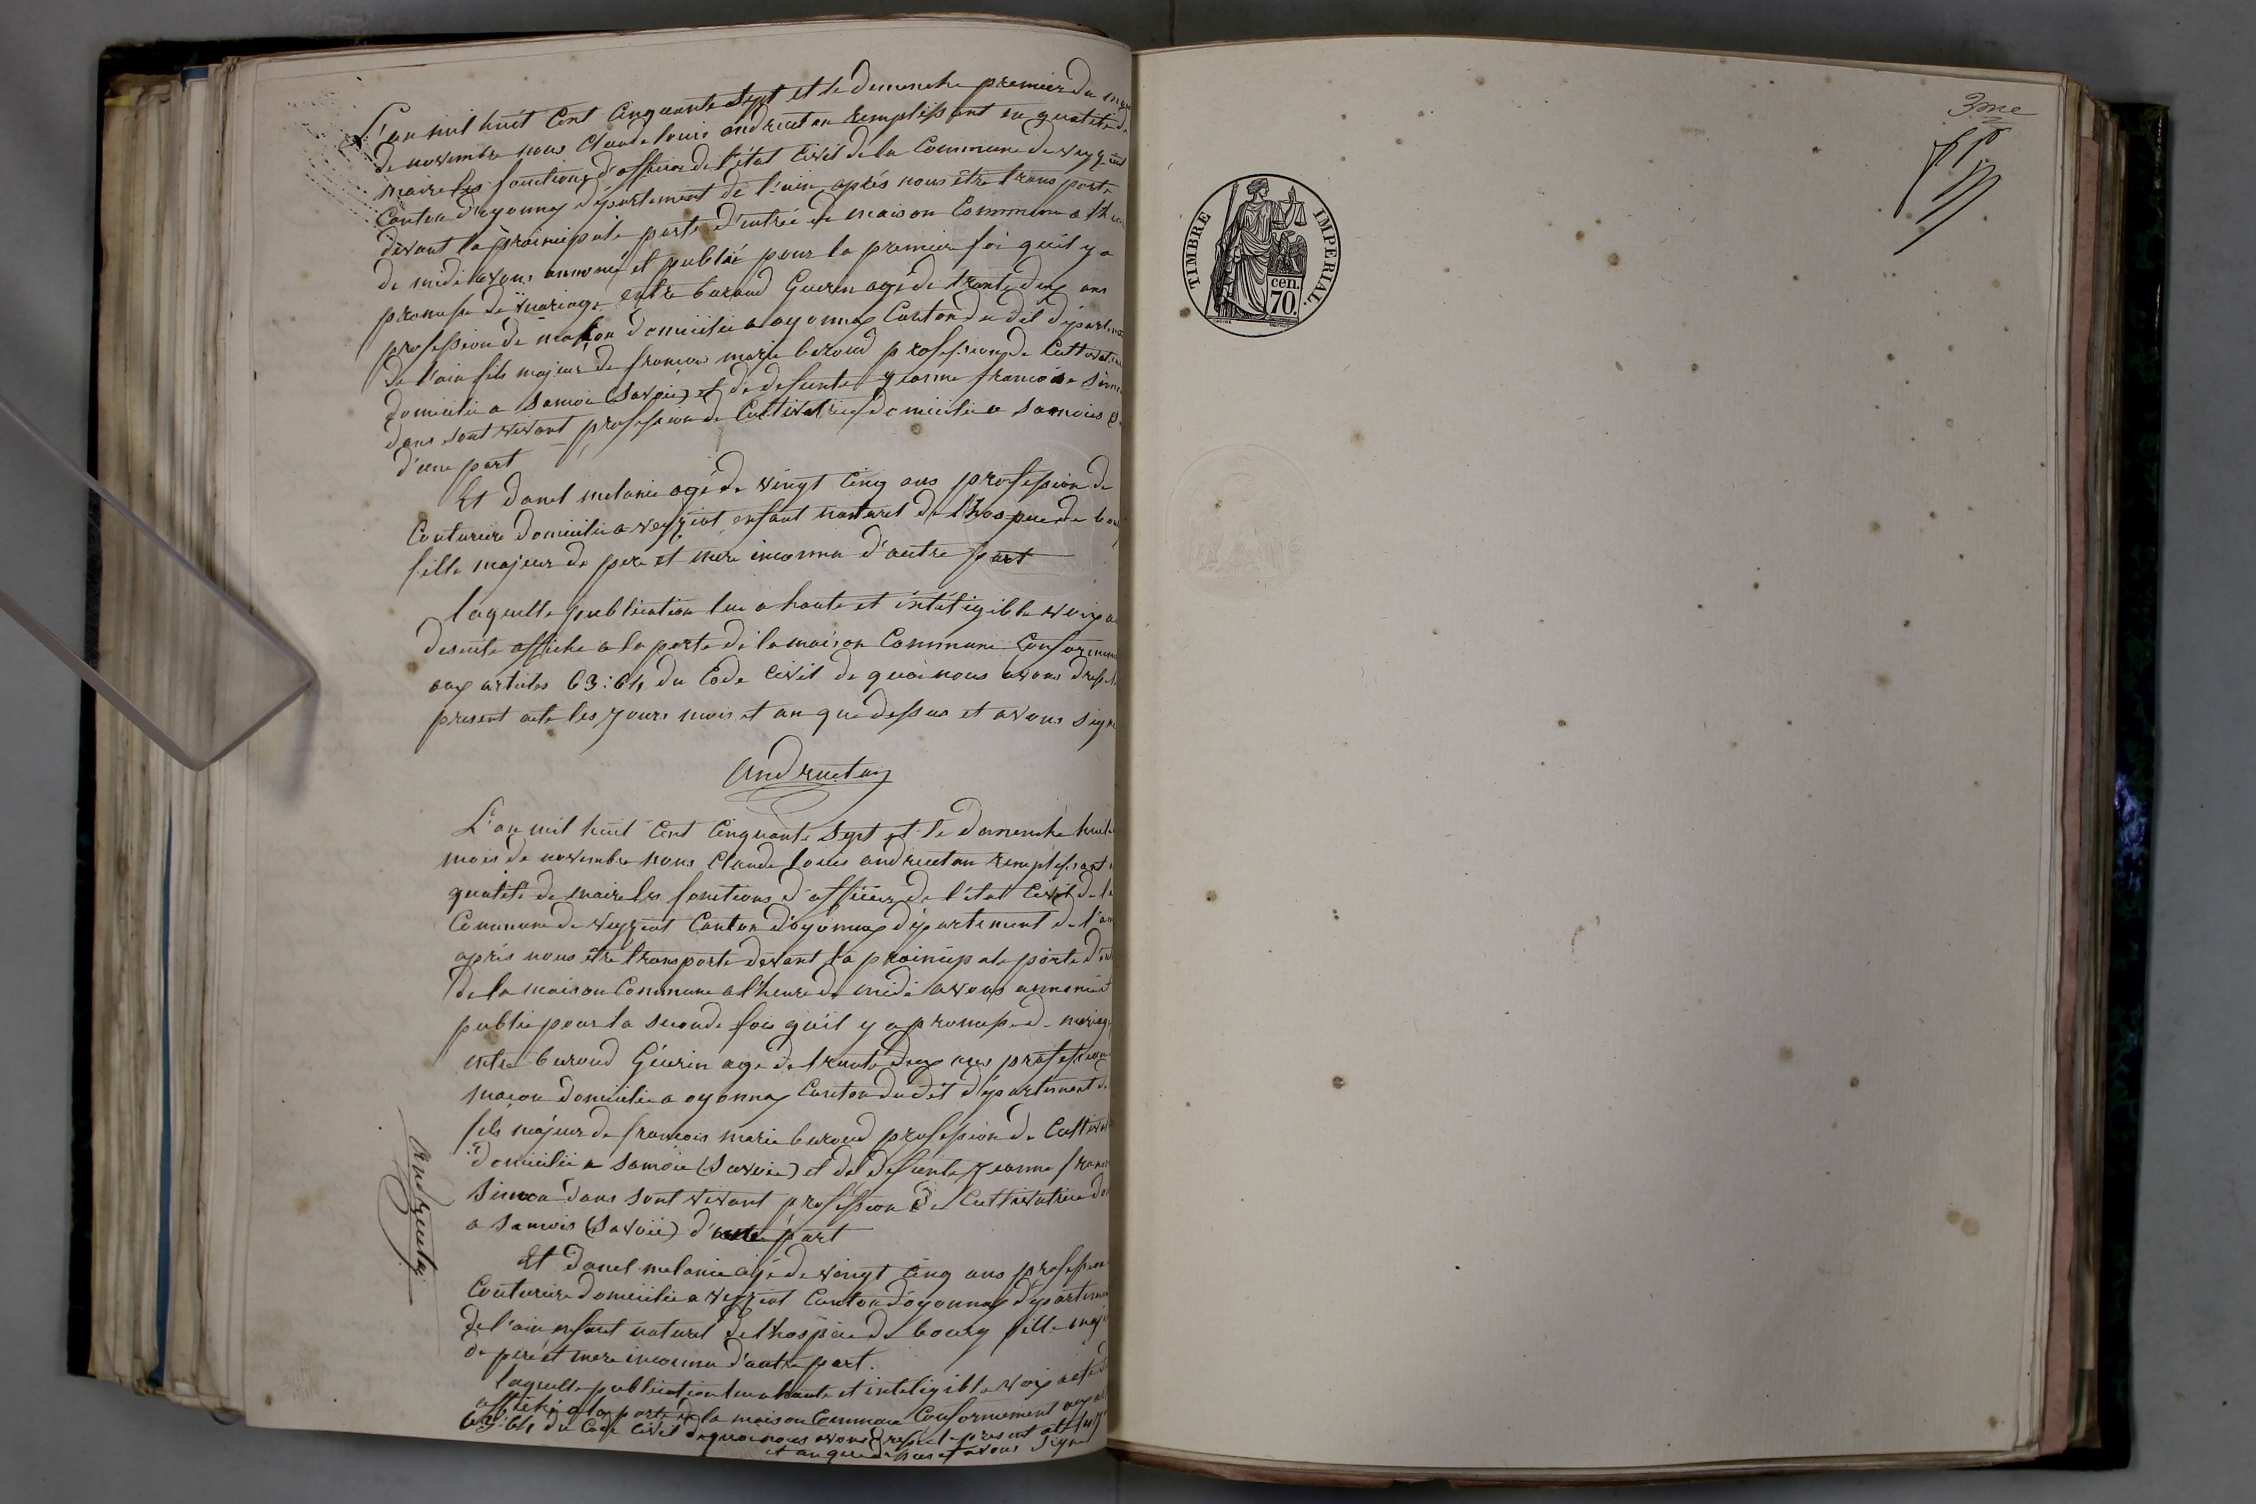 L'an mil huit Cent Cinquante Sept et le Dimenche premier du
de novembre nous Claude louis andruetan remplissant en qualité de
maire les fonctions d'officier de l'état Civil de la Commune de veyziat
Canton d'oyonnax département de l'ain après nous être transporté
devant la praincipale porte d'entrée de maison Commune a
de midi avons annoncé et publié pour la premier foi qu'il y a
promesse de mariage entre baroud Guerin agé de trante deux ans
profession de maçon domicilié a oyonnax Canton du dit
de l'ain fils majeur de francois marie beroud profession de
domicilié a Samoi (Savoie) et de defunte jeanne francoise
dans sont vivant profession de Cultivatrice domicilié a Samoies
d'une part
Et Danel melanie agé de vingt Cinq ans profession de
Couturière domicilié a veyziat enfant naturel de l'hospice de
fille majeur de pere et mère inconnu d'autre part
laquelle publication lue a haute et intéligible voix a
desuite affiche a la porte de la maison Commune
aux articles 63:64 du Code Civil de quoi nous avons
present acte les jours mois et an que dessus et avons
Andruetan
L'an mil huit Cent Cinquante Sept et le Domenche
mois de novembre nous Claude Louis andruetan remplissant
qualité de maire les fonctions d'officier de l'état Civil de
Commune de veyziat Canton d'oyonnax département de
après nous être transporté devant la prainicipale porte
de la maison Commune a l'heure de midi avons
publié pour la seconde fois qu'il y a promesse de
entre beroud Guérin age de trante deux ans profession
maçon domicilié a oyonnax Canton du dit département
fils majeur de francois marie beroud profession de
domicilié a Samoie (Savoie) et de defunte jeanne
Simon dans sont vivant profession de Cultivatrice
a Samois (Savoie) d'une part
Andruetan
Et Danel melanie agé de vingt Cinq ans
Couturiere domicilié a veyziat Canton d'oyonnax
de l'ain enfant naturel de l'hospice de bourg fille
de pere et mere inconnu d'autre part.
laquelle publication lue a haute et inteligible voix
affiché a la porte de la maison Commune Conformement
63:64 du Code Civil de quoi nous avons present
et an que dessus et avons Signé
3me
TIMBRE IMPERIAL.
cen.
70.